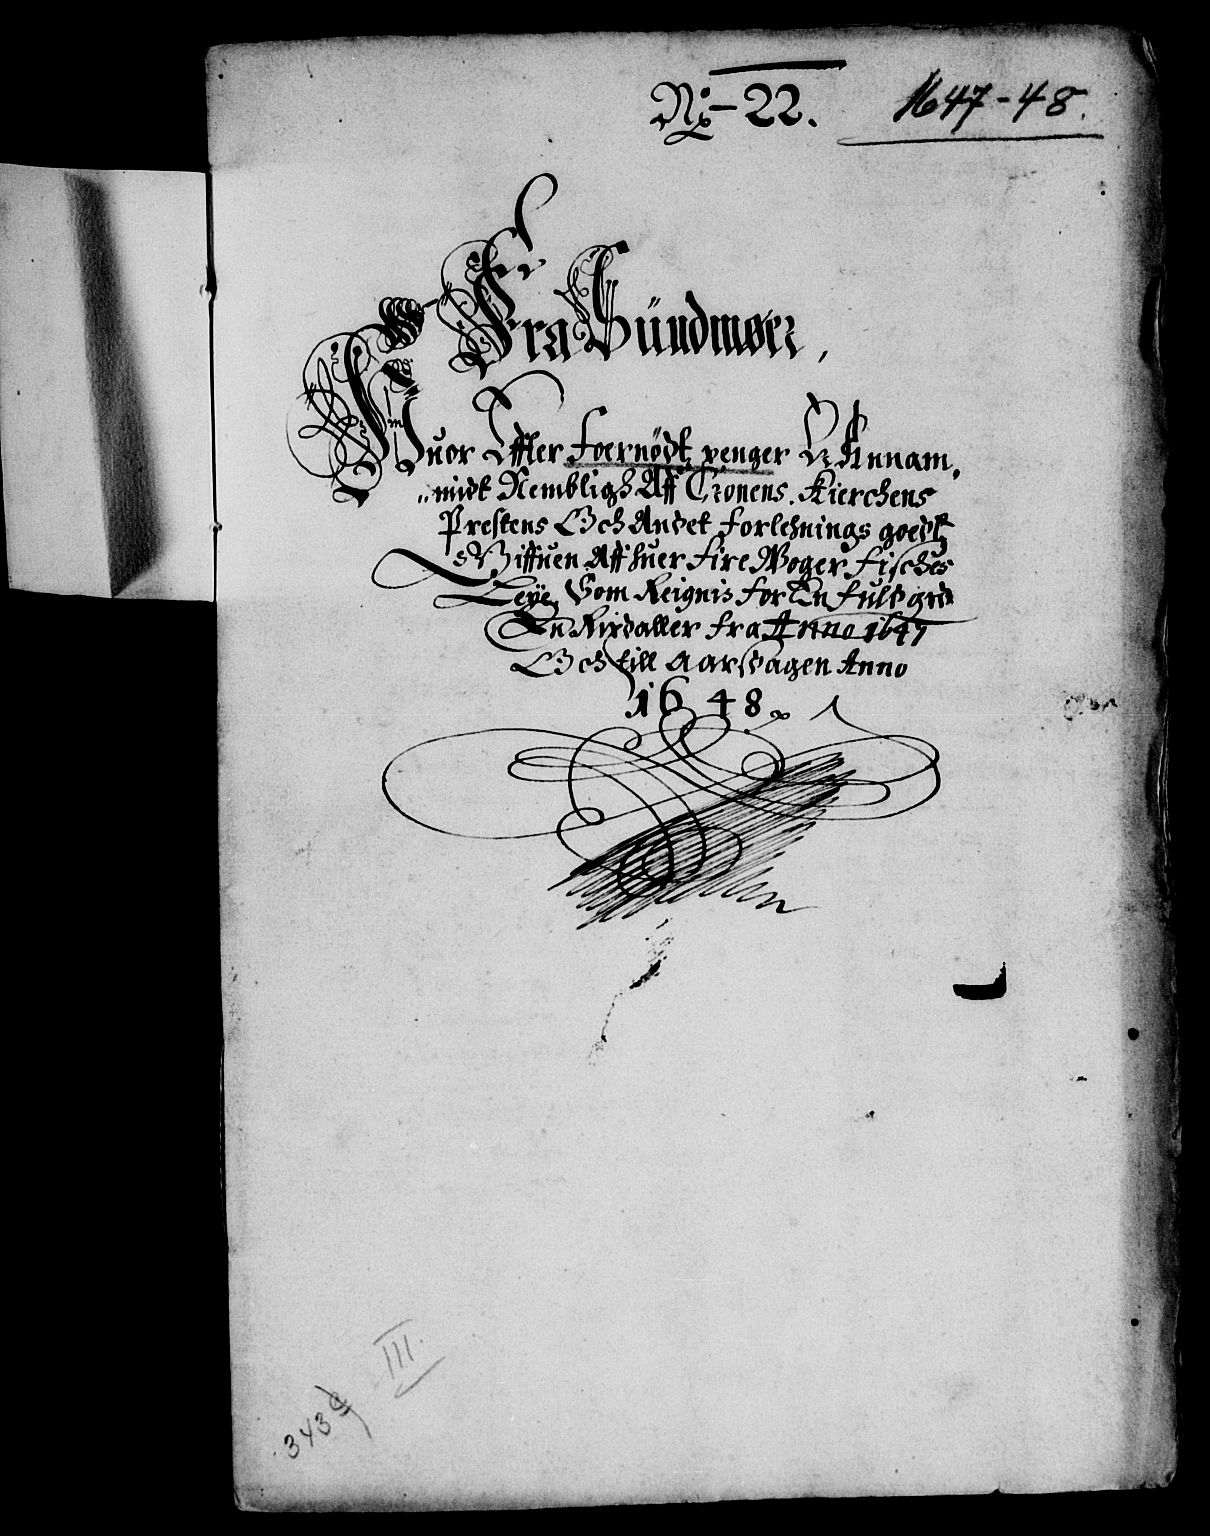 No 22.
1647-48.
Fra Sündmøer,
Huor Effter foernødt penger Er Annam,
„midt Nembligh Aff Cronens. Kierchens
Prestens Och Andet forlehnings goedtz
Giffuen Aff huer fire Woger fisches
Leye, Som Reignis for En fuld grd
En Rixdaller fra Anno 1647
Och till Aarsdagen Anno
1648
III.
343